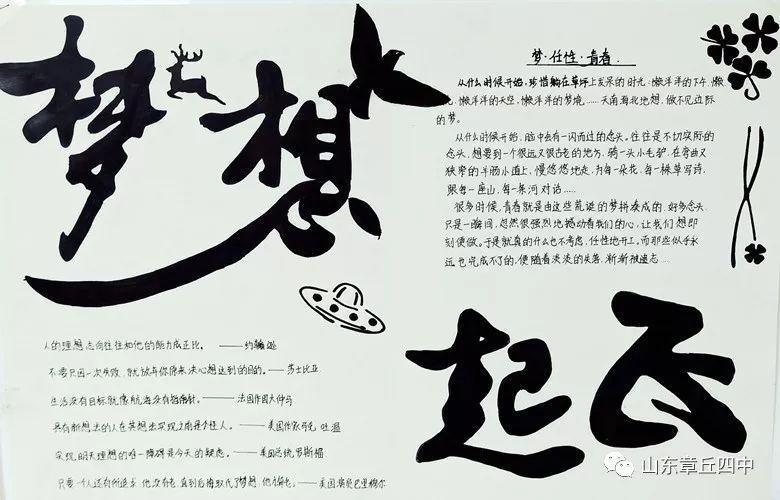 梦想
梦·任性·青春
从什么时候开始,珍惜躺在草坪上发呆的时光:懒洋洋的下午,懒
洋洋的天空,懒洋洋的梦境……天南海北地想,做不见边际
的梦。
从什么时候开始,脑中会有一闪而过的念头。往往是不切实际的
念头,想要到一个很远又很古老的地方,骑一头小毛驴,在弯曲又
狭窄的羊肠小道上,慢悠悠地走,为每一朵花,每一棵草写诗,
跟每一座山,每一条河对话……
很多时候,青春就是由这些荒诞的梦拼凑成的,好多念头,
只是一瞬间,忽然很强烈地撼动着我们的心,让我们想即
刻便做。于是就真的什么也不考虑,任性地开工。而那些似乎永
远也完成不了的,便随着淡淡的失落,渐渐被遗忘……
人的理想志向往往和他的能力成正比。——约翰逊
不要只因一次失败,就放弃你原来决心想达到的目的。——莎士比亚
生活没有目标就像航海没有指南针。——法国作家大仲马
具有新想法的人在其想法实现之前是个怪人。——美国作家马克 吐温
实现明天理想的唯一障碍是今天的疑虑。——美国总统罗斯福
只要一个人还有所追求,他没有老,直到后悔取代了梦想,他才算老。——美国演员巴里穆尔
起飞
山东章丘四中